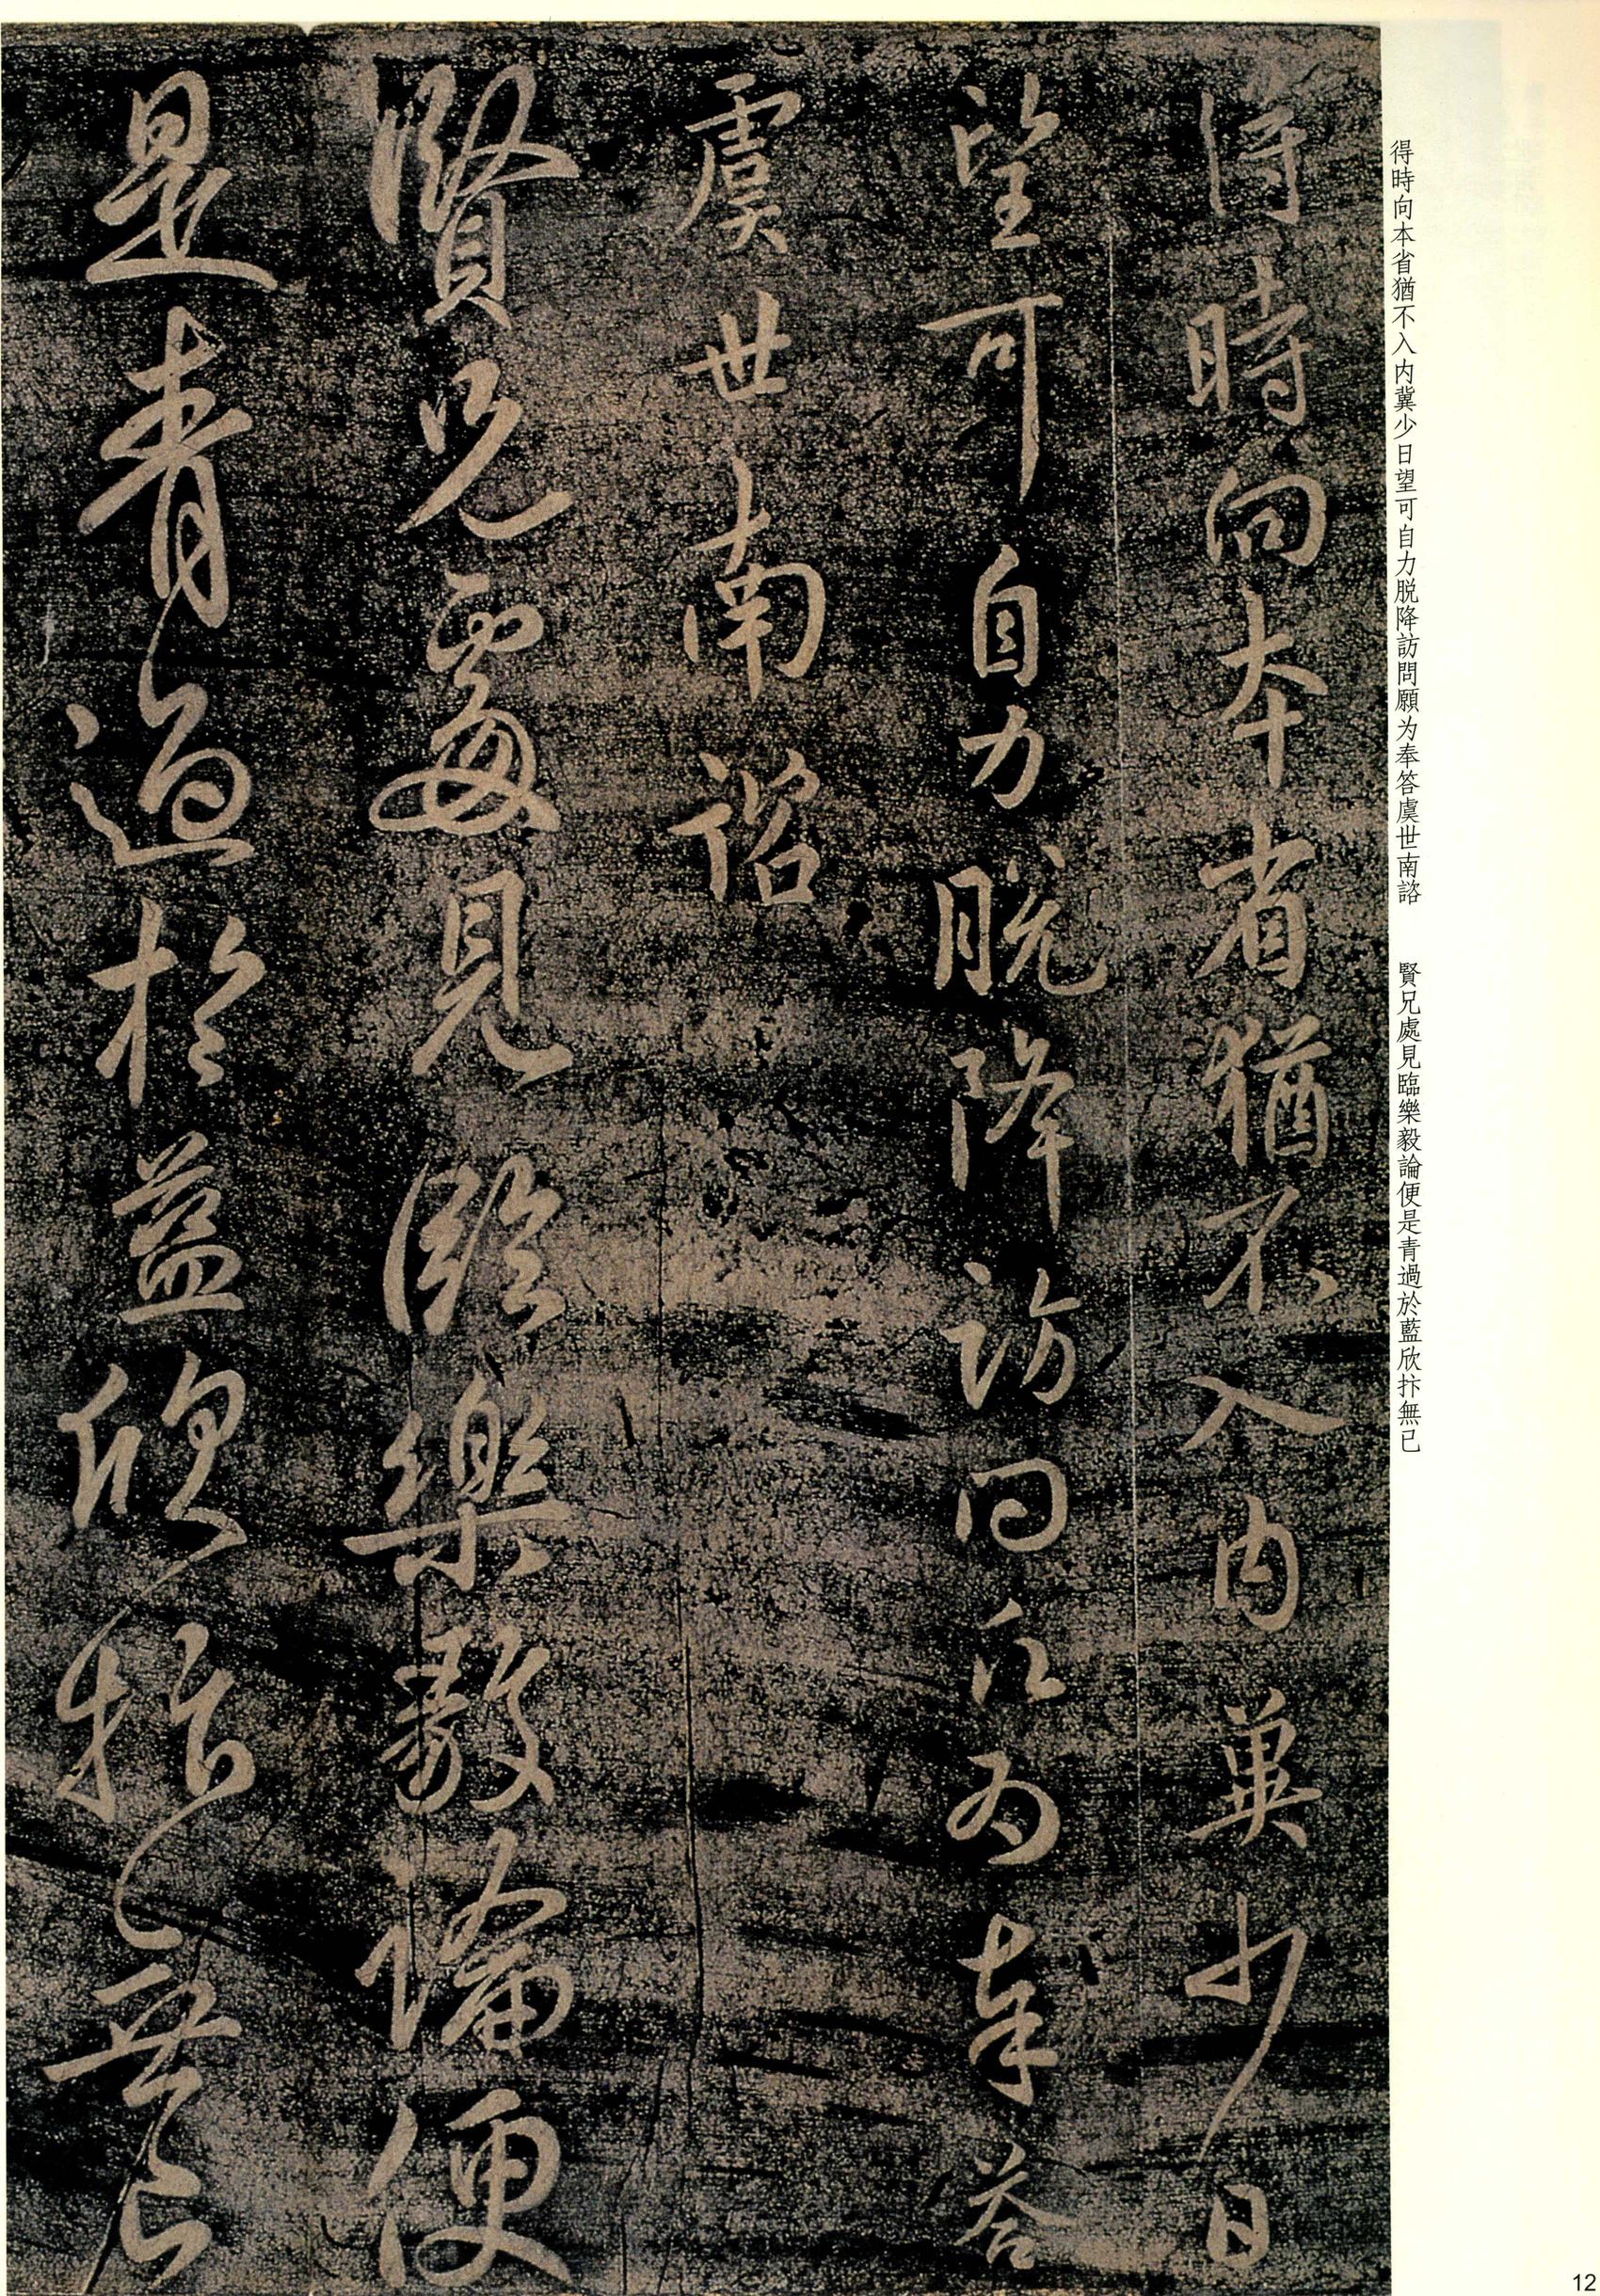 得時向本省猶不入内冀少日望可自力脱降訪問願为奉答虞世南諮　賢兄處見臨樂毅論便是青過於藍欣抃無已
得時向本省猶不入内冀少日
望可自力脱降訪問願为奉答
虞世南諮
賢兄處見臨樂毅論便
是青過於藍欣抃無已
12